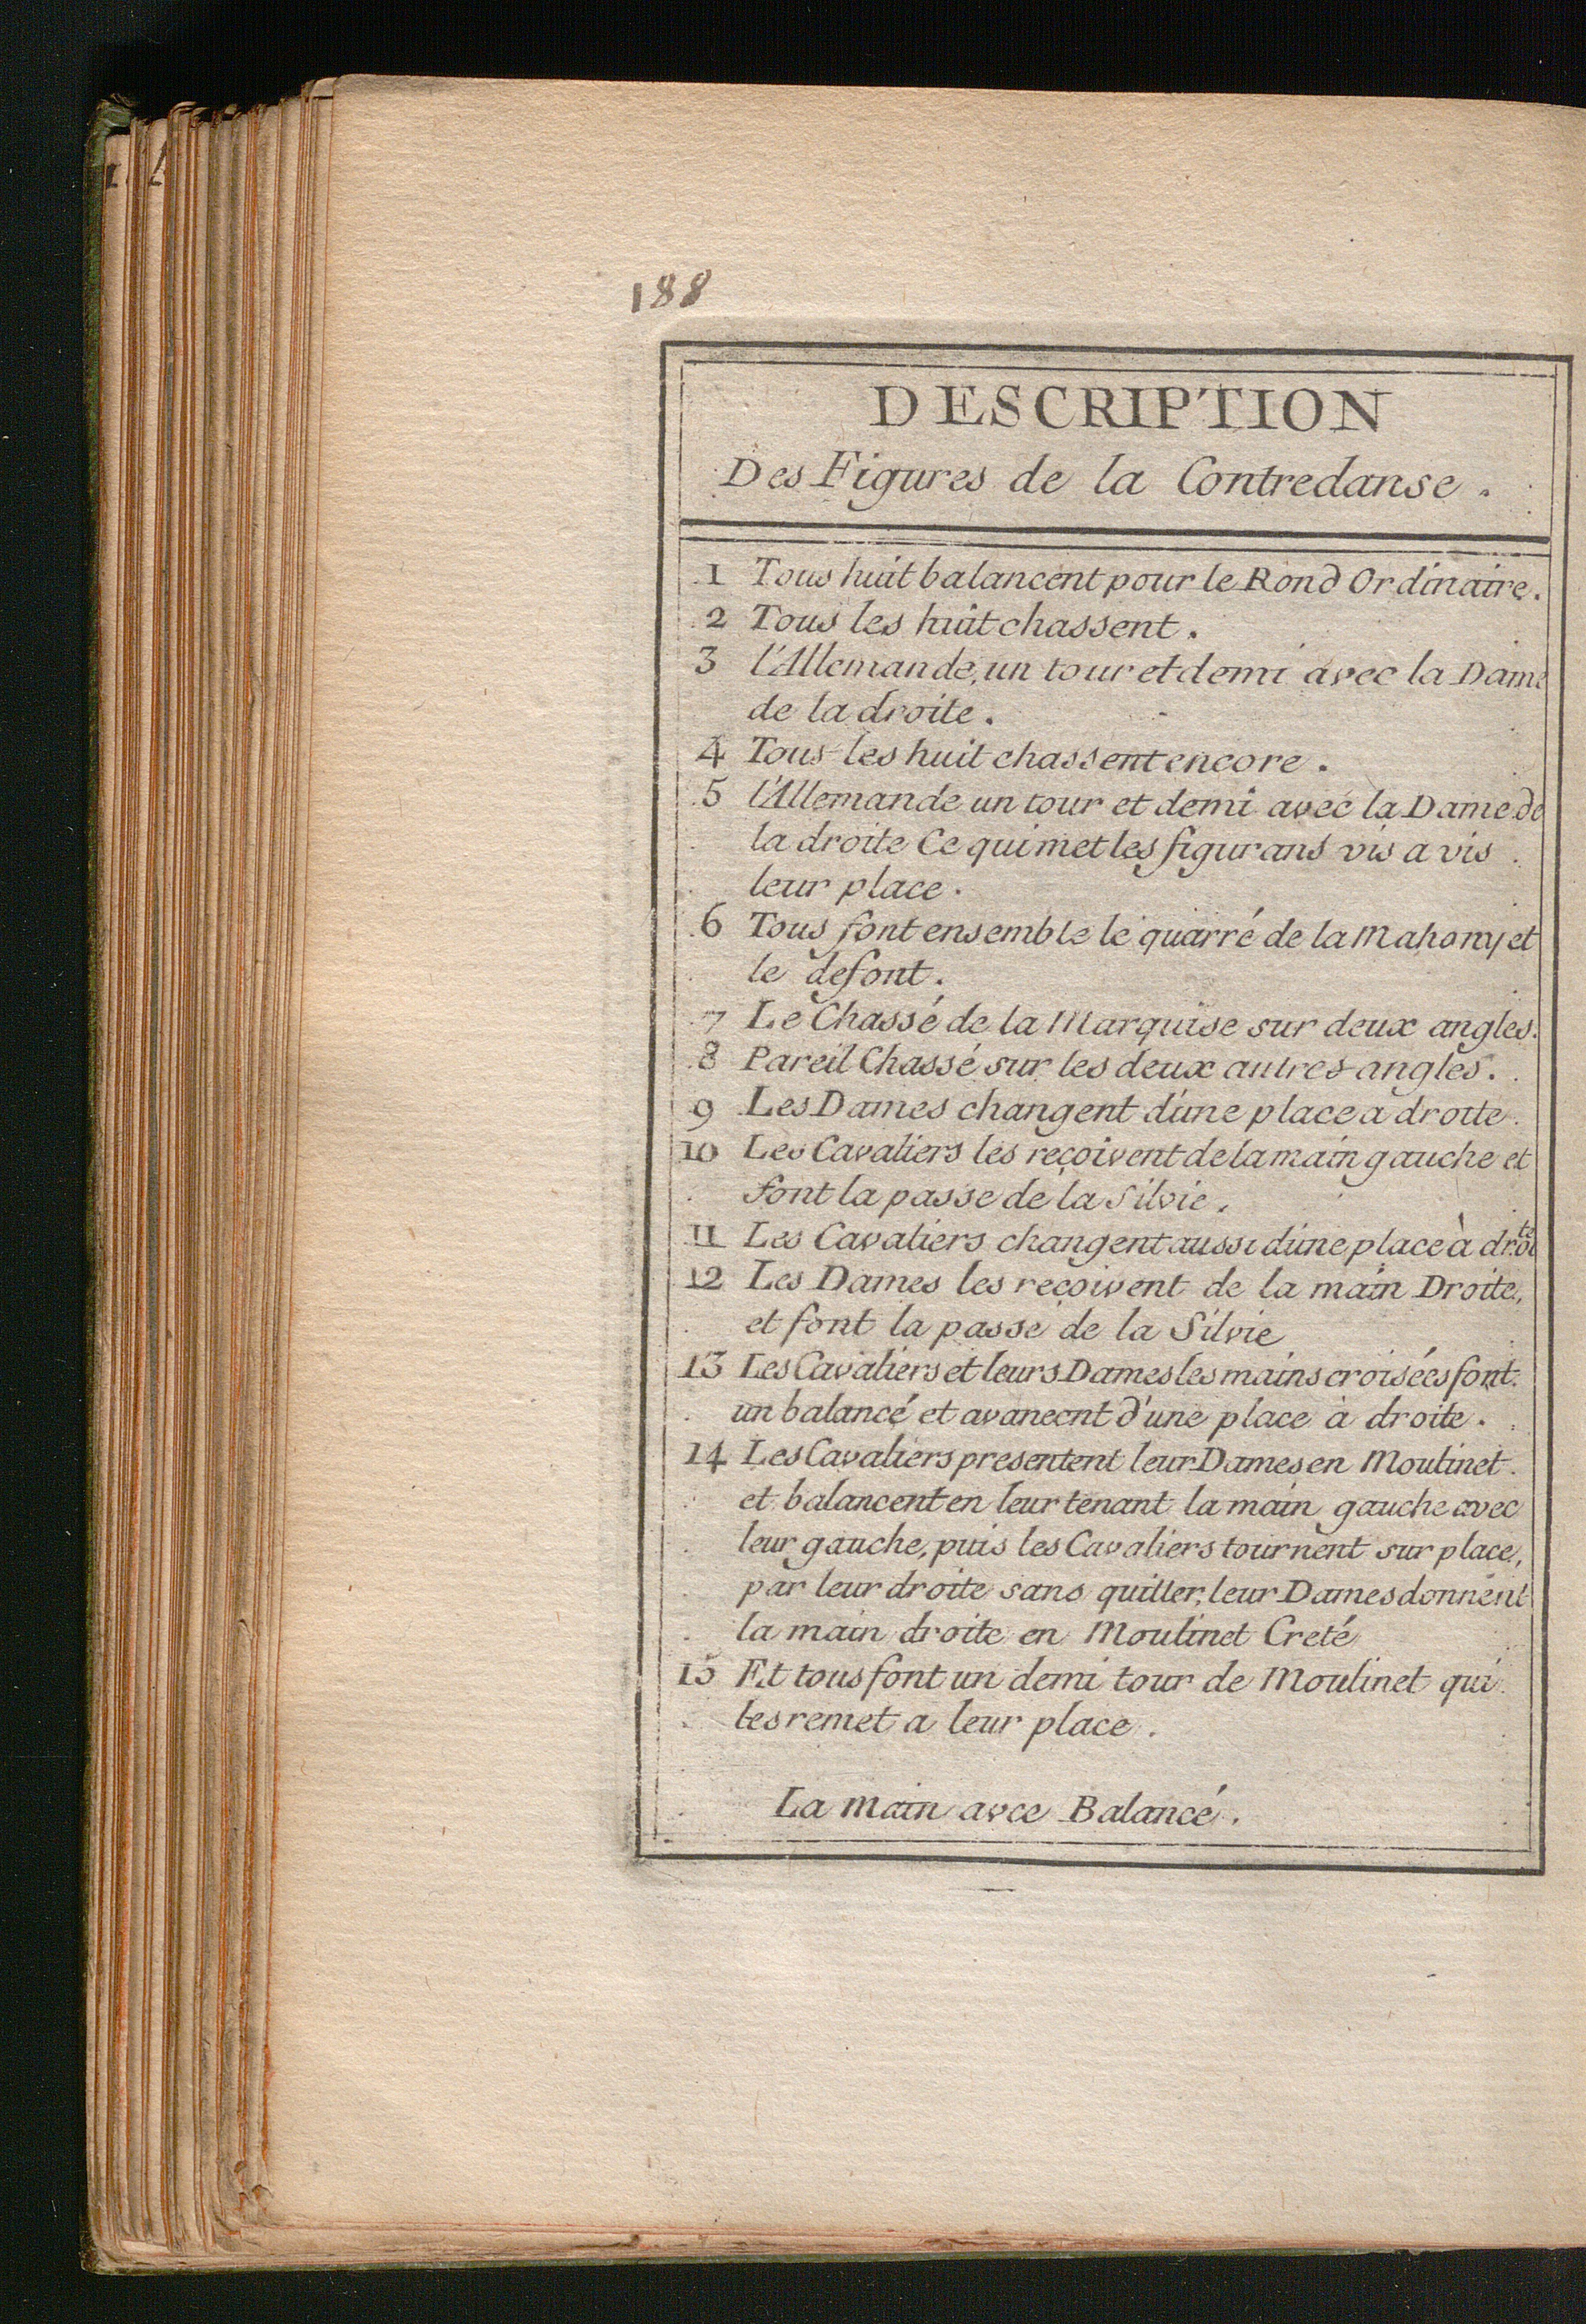 188
DESCRIPTION
Des Figures de la Contredanse.
1 Tous huit balancent pour le Rond Ordinaire.
2 Tous les huit chassent.
3 l'Allemande, un tour et demi avec la Dame
de la droite.
4 Tous les huit chassent encore.
5 l'Allemande un tour et demi avec la Dame de
la droite Ce qui met les figurans vis a vis
leur place.
6 Tous font ensemble le quarré de la Mahony et
le defont.
7 Le Chassé de la Marquise sur deux angles.
8 Pareil Chassé sur les deux autres angles.
9 Les Dames changent d'une place a droite.
10 Les Cavaliers les reçoivent de la main gauche et
font la passe de la Silvie.
11 Les Cavaliers changent aussi d'une place à droite
12 Les Dames les reçoivent de la main Droite,
et font la passe de la Silvie
13 Les Cavaliers et leurs Dames les mains croisées font
un balancé et avanecnt d'une place à droite.
14 Les Cavaliers presentent leur Dames en Moulinet.
et balancent en leur tenant la main gauche avec
leur gauche, puis les Cavaliers tournent sur place,
par leur droite sans quitter, leur Dames donnent
la main droite en Moulinet Creté
15 Et tous font un demi tour de Moulinet qui
les remet a leur place.
La main avce Balancé.